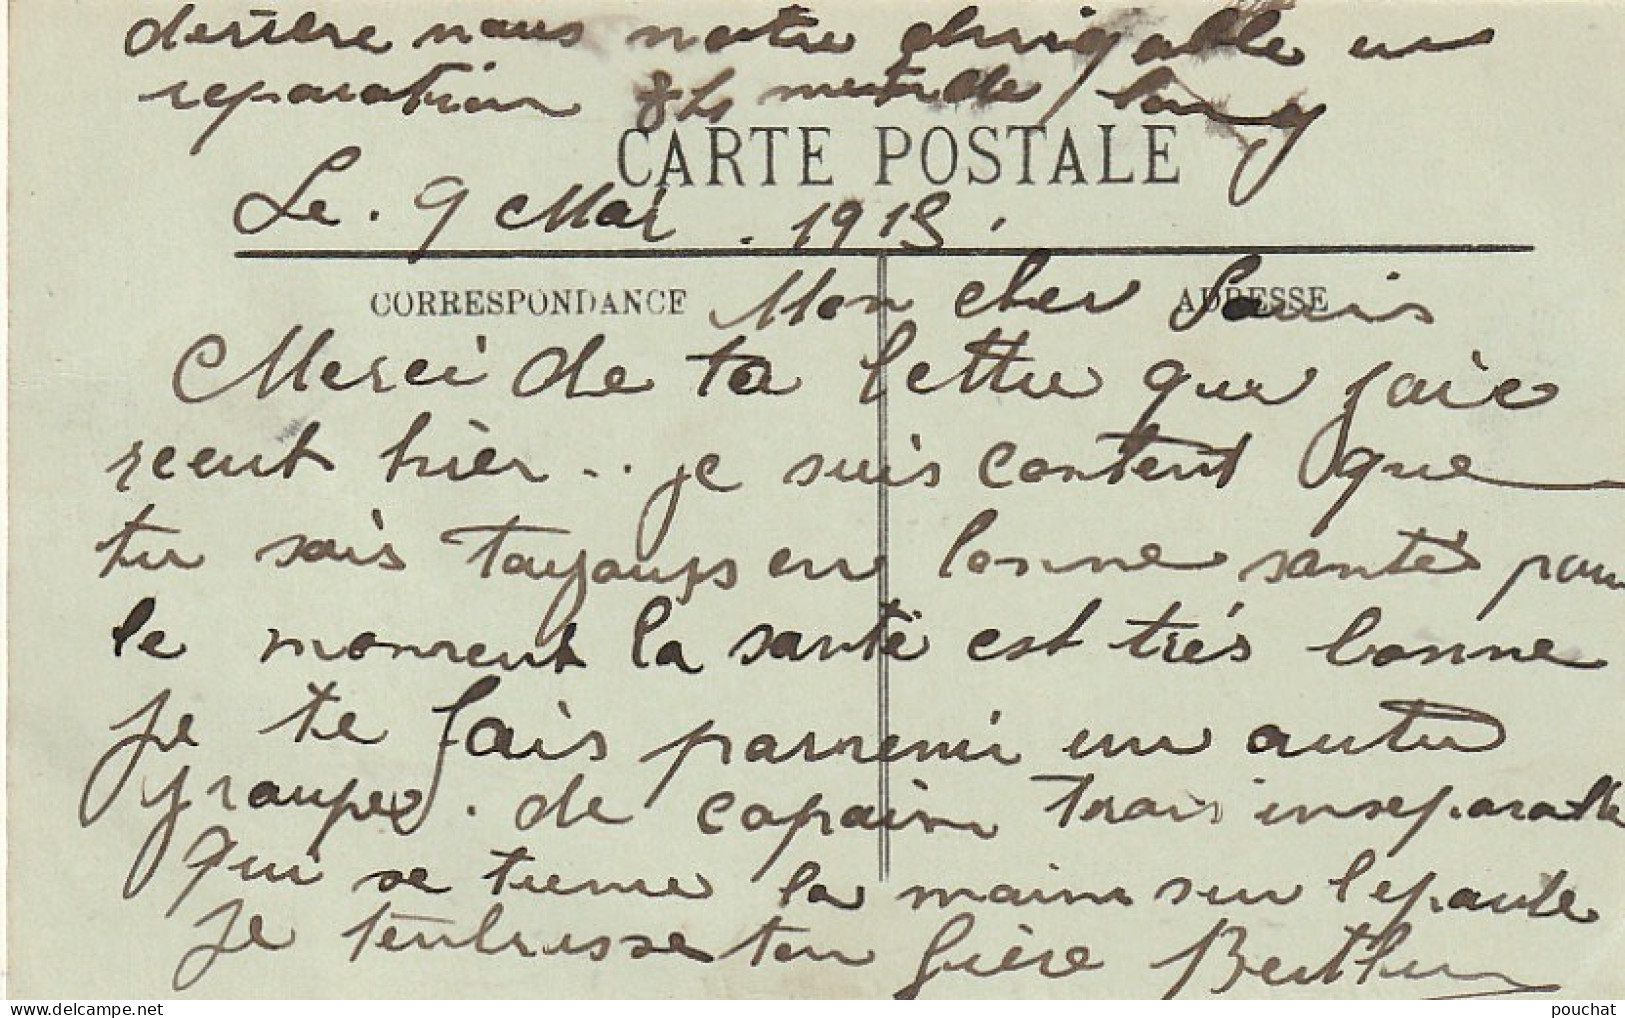 derriere nous notre dirigable en
reparation 84 metre de long
CARTE POSTALE
Le. 9 Mai. 1915.
CORRESPONDANCE ADRESSE
Mon cher Louis
Merci de ta lettre que jaie
recut hier.. je suis content que
tu sois toujours en bonne santé pour
le moment la santé est trés bonne
je te fais parvenir un autre
groupe. de copain trois inseparable
qui se tienne la main sur l'epaule
je tenbrasse ton frère Berthu
pouchat